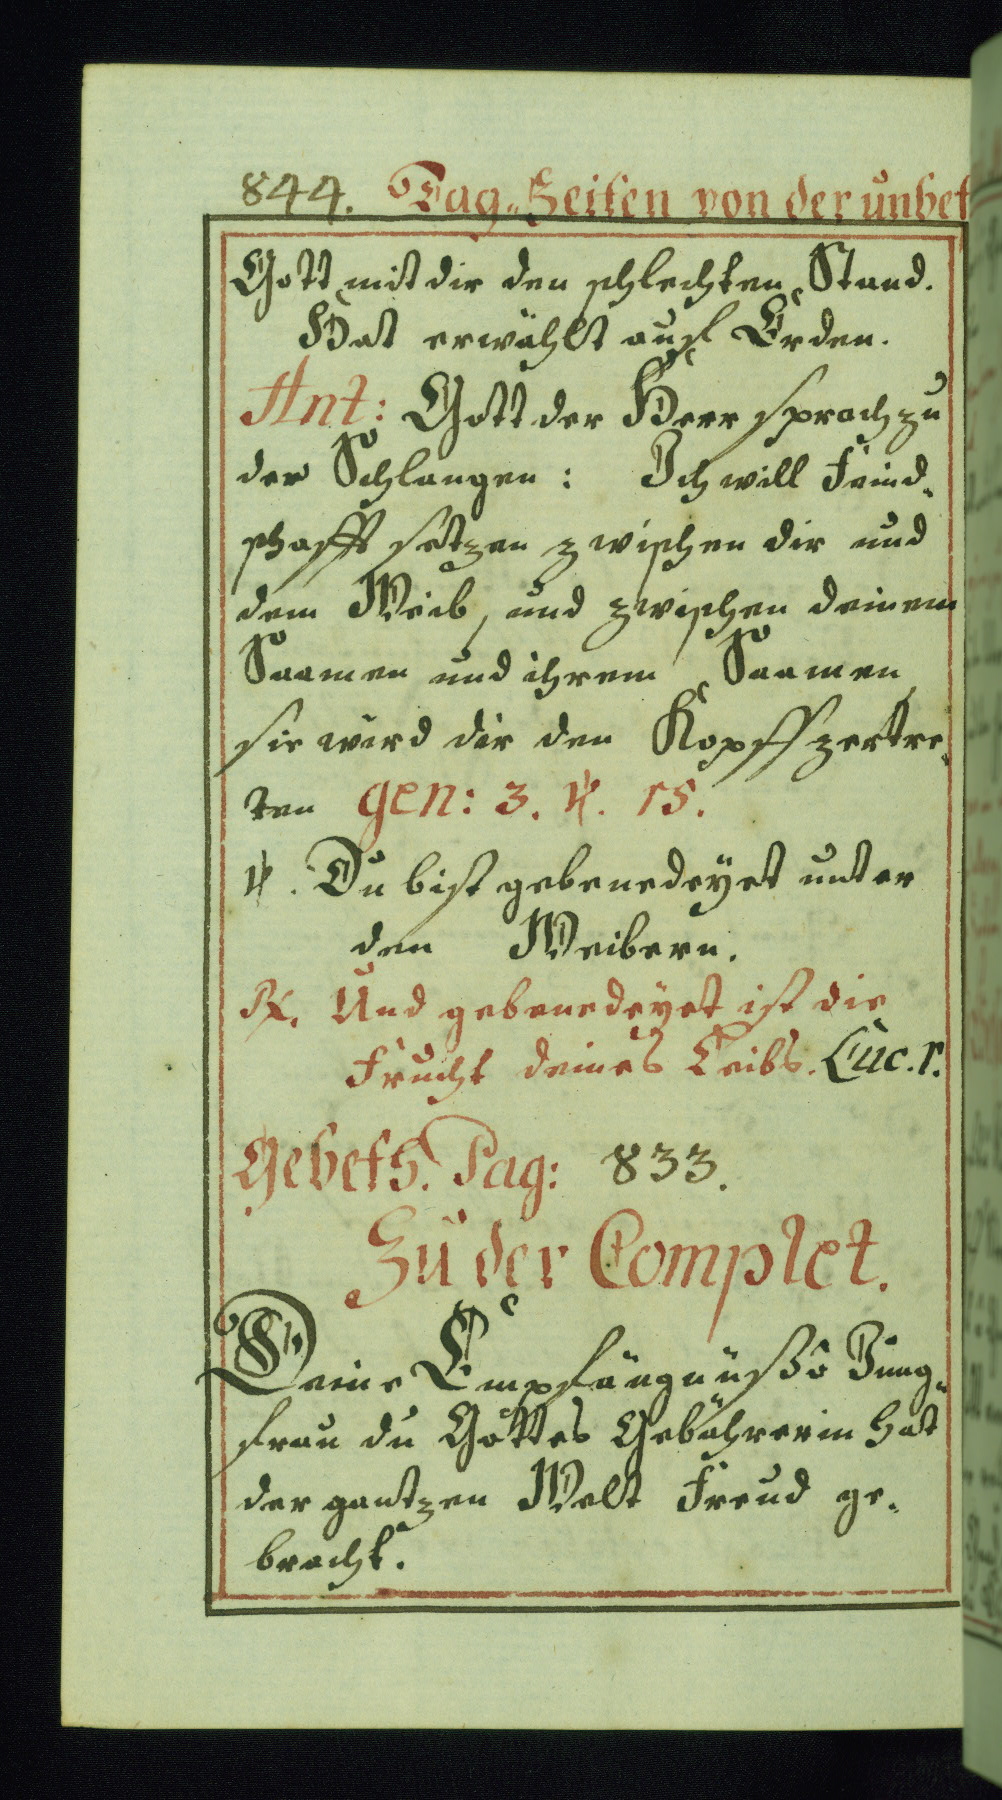 844. Tag-Zeiten von der unbef
Gott mit dir den schlechten Stand.
Hat erwählt auf Erden.
Ant: Gott der Herr sprach zu
der Schlangen: Ich will Feind-
schafft setzen zwischen dir und
dem Weib, und zwischen deinem
Saamen und ihrem Saamen,
sie wird dir den Kopff zertre-
ten gen: 3. ℣. 15.
℣. Du bist gebenedeyet unter
den Weibern.
℟. Und gebenedeyet ist die
Frucht deines Leibs. Luc. 1.
Gebeth. Pag: 833.
Zu der Complet.
Deine Empfängnüß ô Jung-
frau du Gottes Gebährerin hat
der gantzen Welt Freud ge-
bracht.